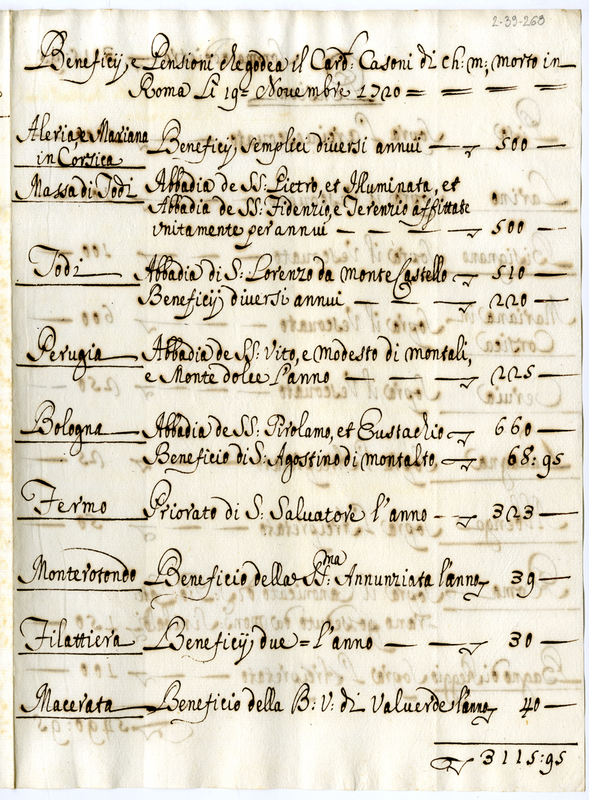 2-39-268
Beneficij, e Pensioni che godea il Card: Casoni di ch: m: morto in
Roma li 19 Novembre 1720 =
Aleria, e Mariana Beneficij semplici diversi annui — 500 —
in Corsica
Massa di Todi Abbadia de SS: Pietro, et Illuminata, et
Abbadia de SS: Fidenzio, e Terenzio affittate
unitamente per annui — 500 —
Todi Abbadia di S: Lorenzo da monte Castello — 510 —
Beneficij diversi annui — 220 —
Perugia Abbadia de SS: Vito, e Modesto di montali,
e Monte dolce l'anno — 225 —
Bologna Abbadia de SS: Girolamo, et Eustachio — 660 —
Beneficio di S: Agostino di montalto — 68:95
Fermo Priorato di S: Salvatore l'anno — 323 —
Monterotondo Beneficio della SS:ma Annunziata l'anno 39 —
Filattiera Beneficij due = l'anno — 30 —
Macerata Beneficio della B: V: di Valverde l'anno 40 —
3115:95